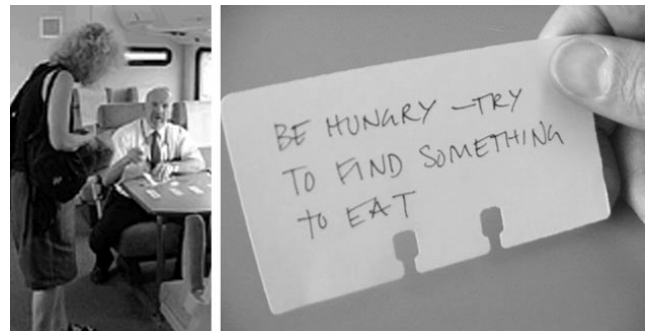 BE HUNGRY – TRY
TO FIND SOMETHING
TO EAT